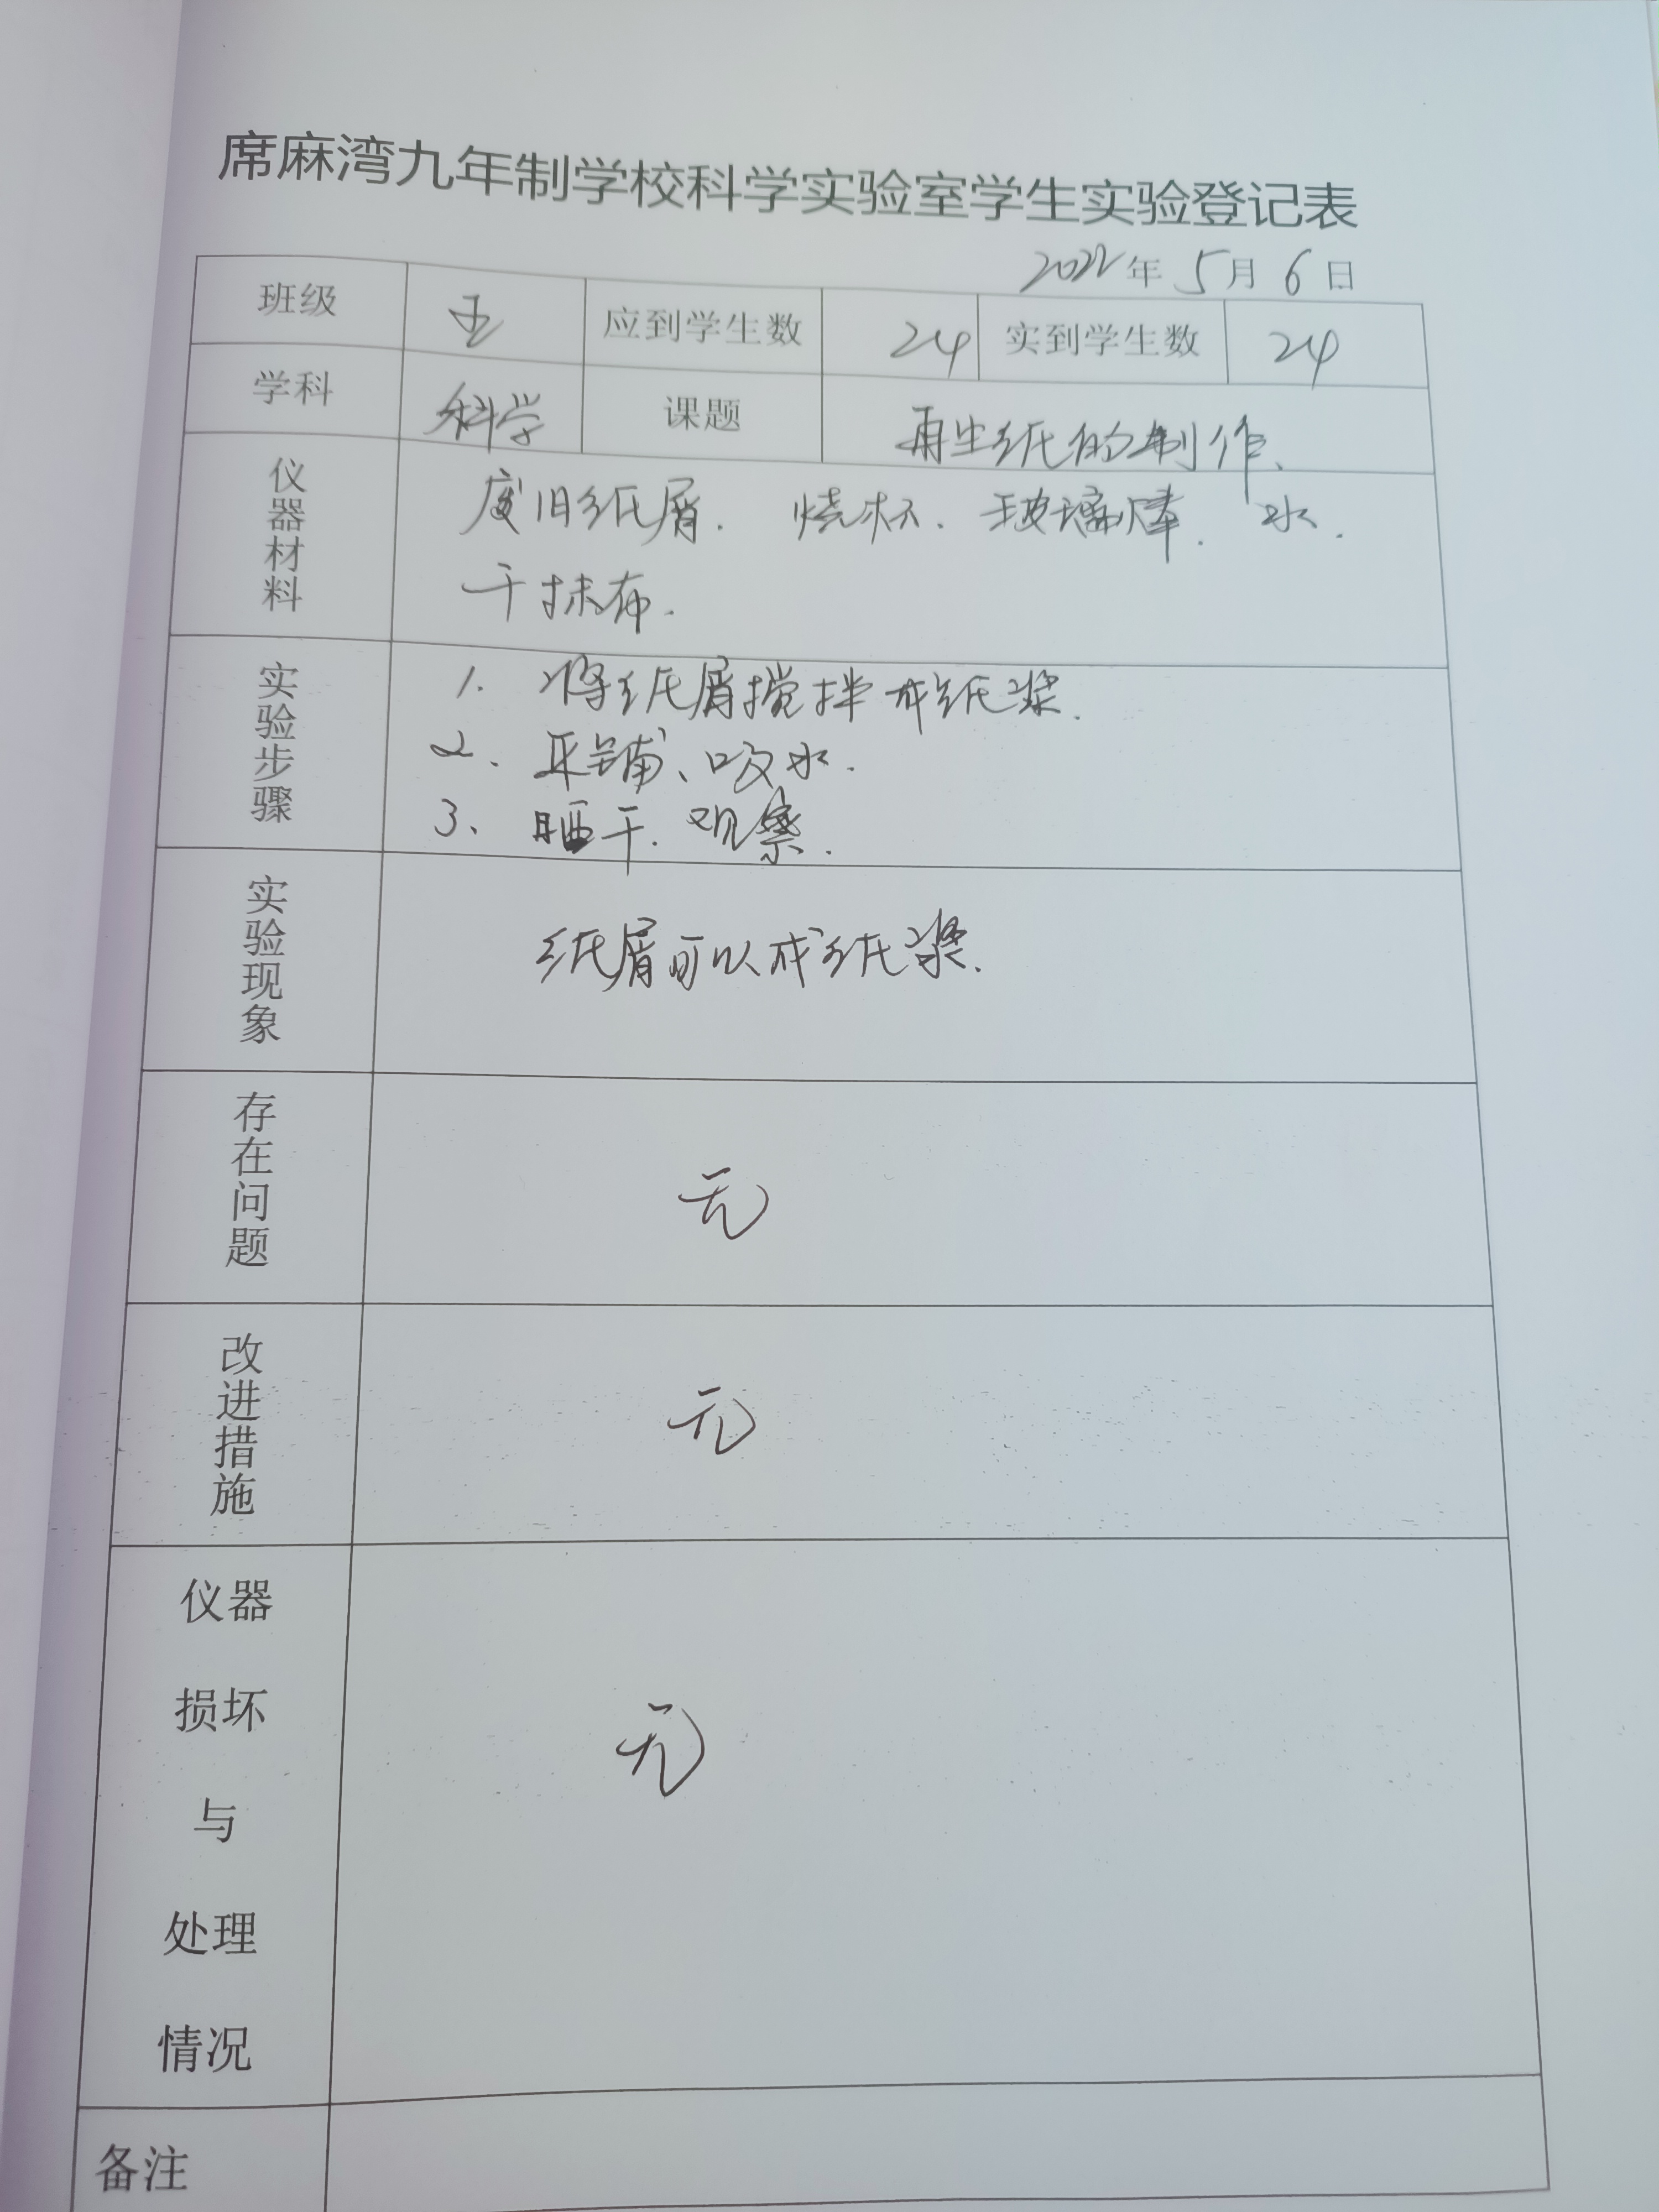 席麻湾九年制学校科学实验室学生实验登记表
2022年5月6日
班级 五 应到学生数 24 实到学生数 24
学科 科学 课题 再生纸的制作、
仪器材料 废旧纸屑. 烧杯. 玻璃棒. 水.
干抹布.
实验步骤 1. 将纸屑搅拌成纸浆.
2、平铺、吸水.
3、晒干. 观察.
实验现象 纸屑可以成纸浆.
存在问题 无
改进措施 无
仪器
损坏
与 无
处理
情况
备注